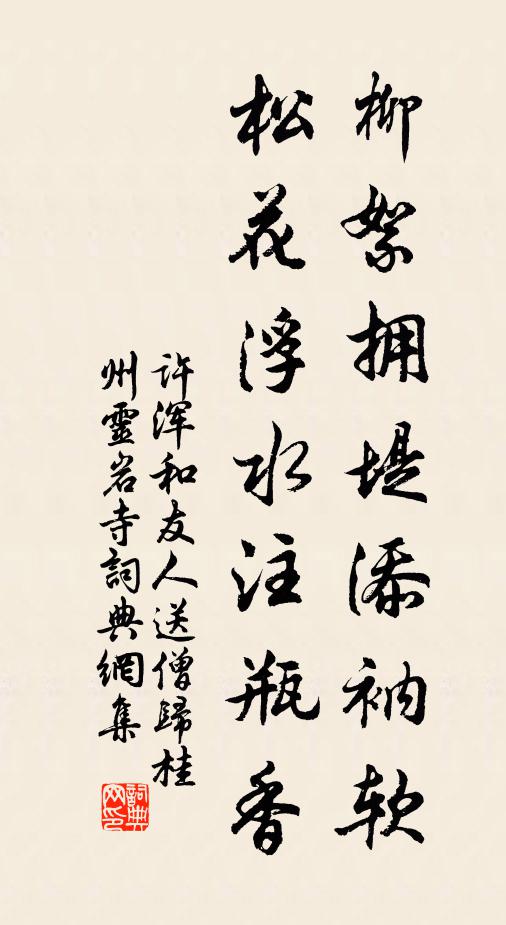 柳絮拥堤添衲软
松花浮水注瓶香
许浑和友人送僧歸桂
州靈岩寺詞典網集
詞典
网印